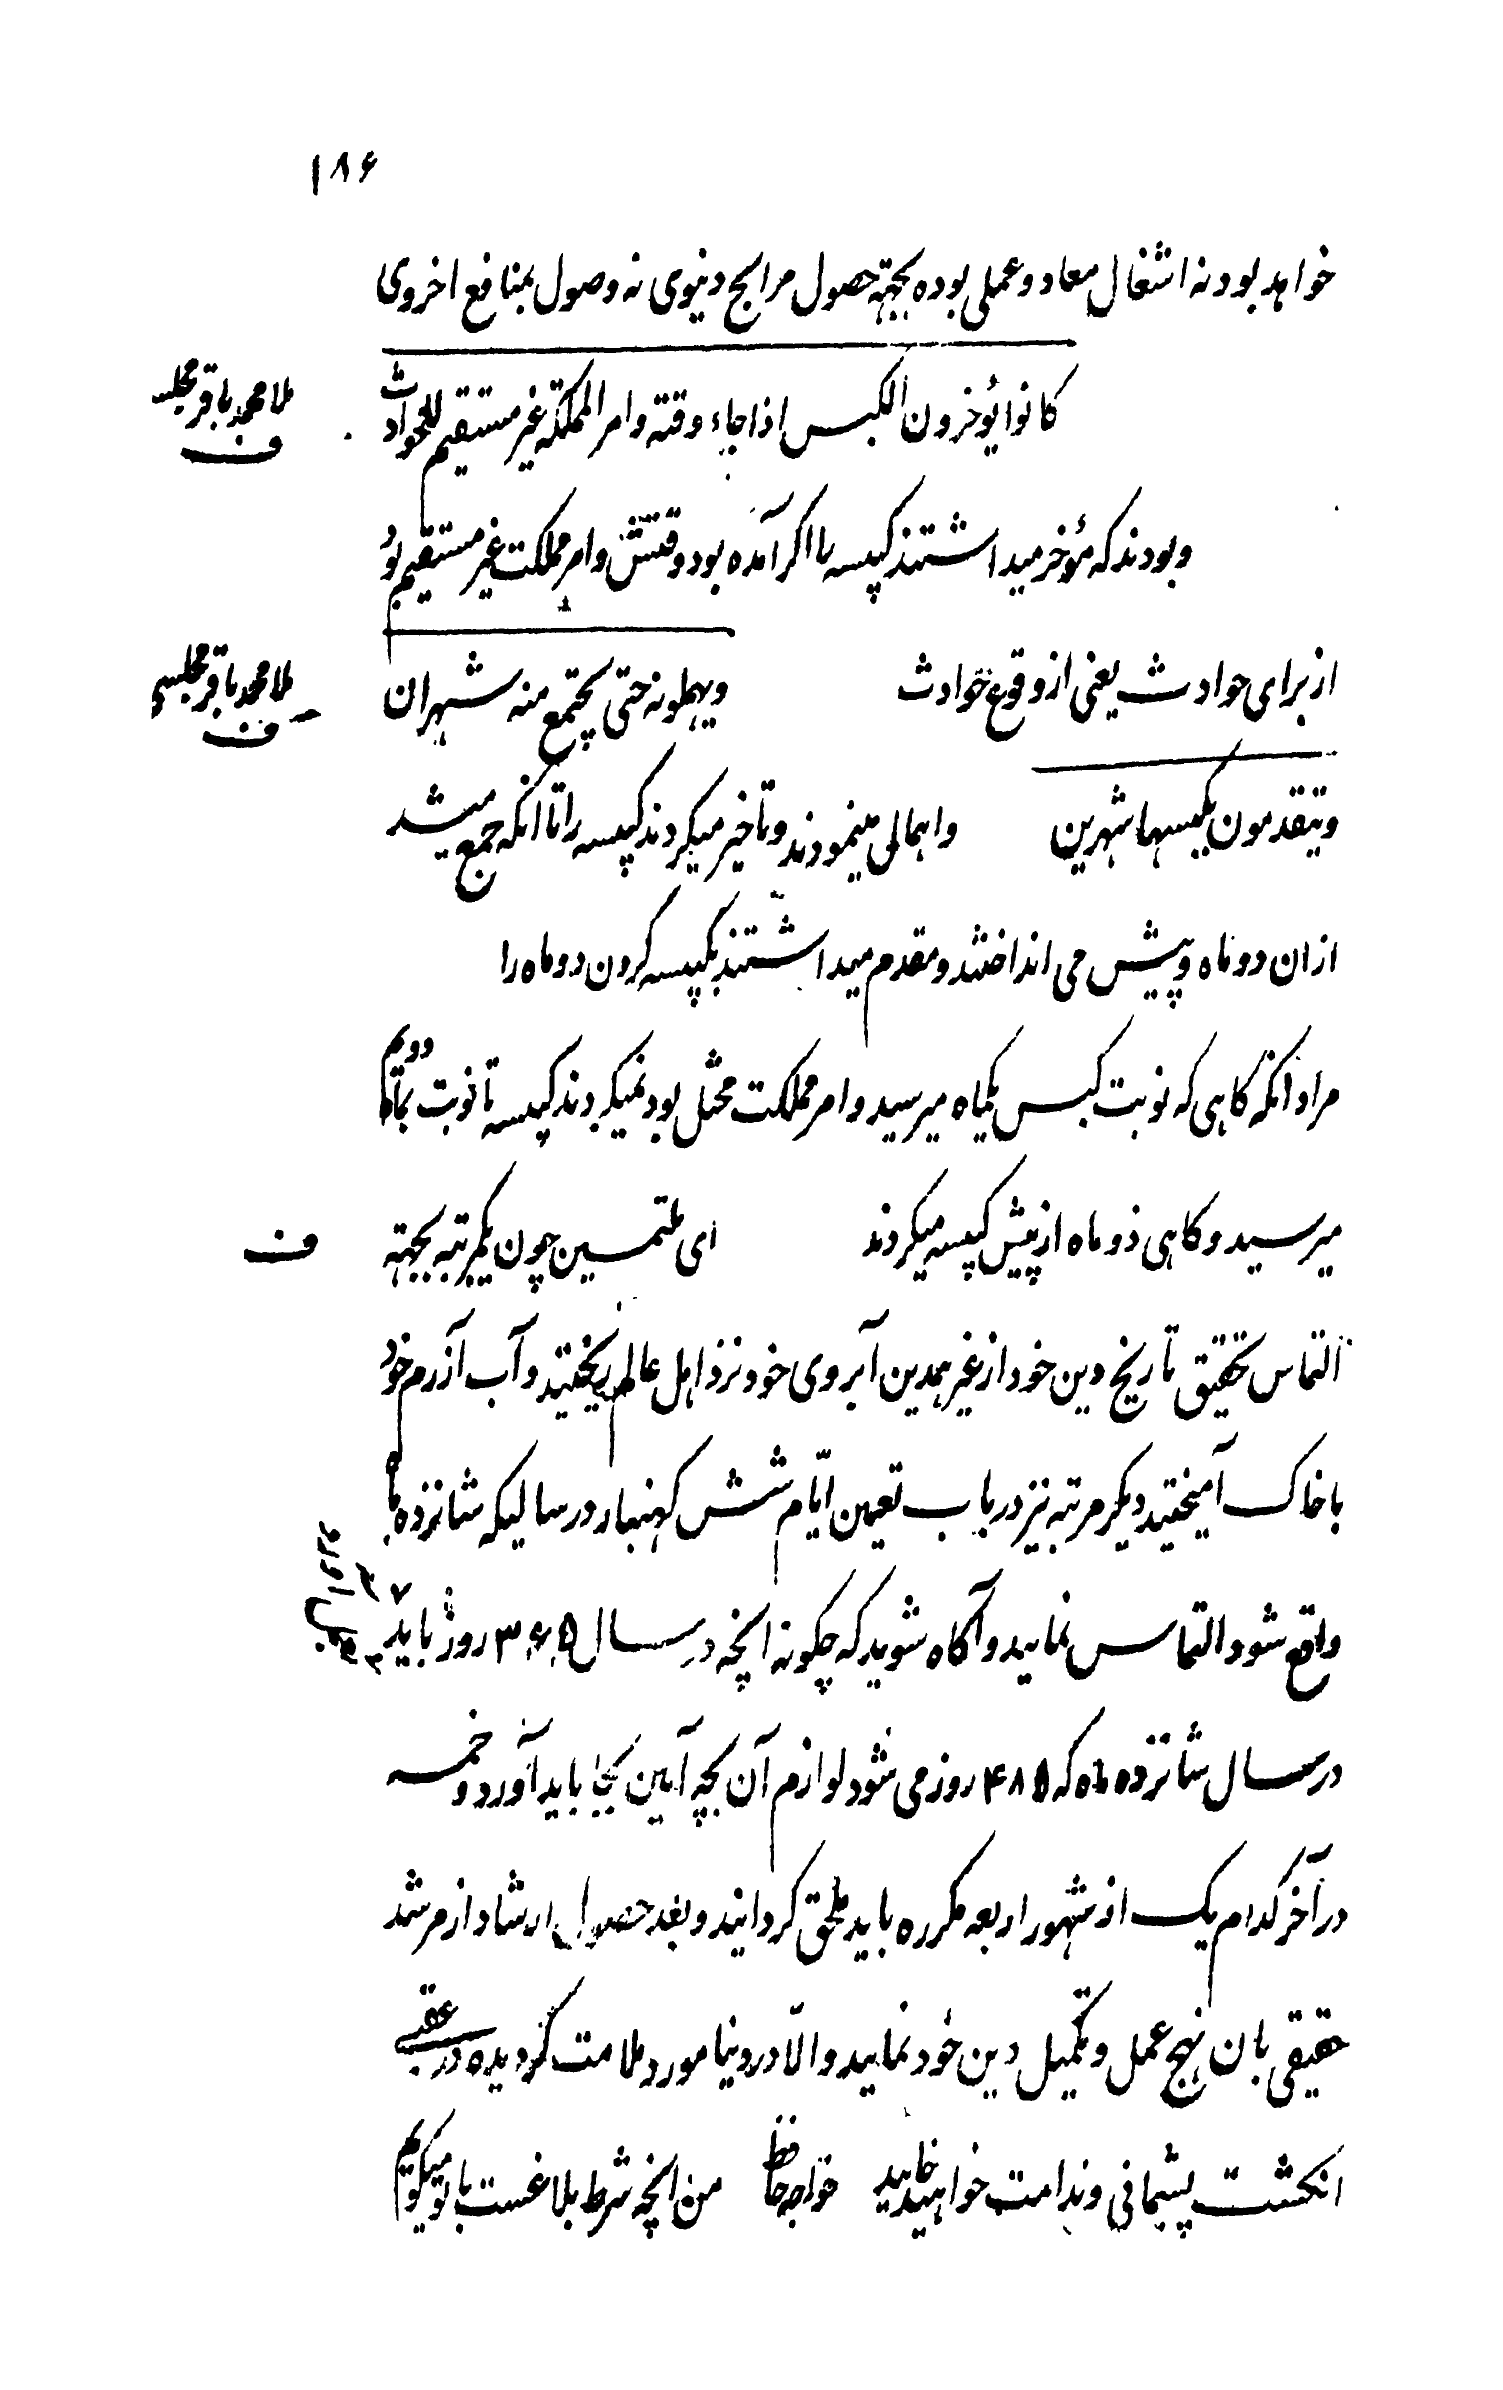 ۱۸۶
خواهد بود نه اشغال معاد و عملی بوده بجهة حصول مرابح دنیوی نه وصول بمنافع اخروی
ملا محمد باقر مجلسی
ف
کانوا یؤخرون الکبس اذا جاء وقته و امر المملکة غیر مستقیم للحوادث
و بودند که مؤخر میداشتند کپیسه را اکر آمده بود وقتش و امر مملکت غیر مستقیم بود
از برای حوادث یعنی از وقوع حوادث ویهملونه حتی یجتمع منه شهران
ملا محمد باقر مجلسی
ف
ویتقدمون بکبسها شهرین واهمالی مینمودند و تاخیر میکردند کپیسه را تا انکه جمع میشد
از ان دو ماه و پیش می انداختند و مقدم میداشتند بکپیسه کردن دو ماه را
مراد انکه کاهی که نوبت کبس یکماه میرسید و امر مملکت مختل بود نمیکردند کپیسه تا نوبت بماه دویم
میرسید و کاهی دو ماه از پیش کپیسه میکردند ای ملتمسین چون یکمرتبه بجهة
ف
التماس تحقیق تاریخ دین خود از غیر همدین آبروی خود نزد اهل عالم ریختید و آب آزرم خود
با خاک آمیختید دیکر مرتبه نیز در باب تعین ایّام شش کهنبار در سالیکه شانزده ماه
واقع شود التماس نمایید و آکاه شوید که چکونه انچه در سال ۳۶۵ روز باید
در سال شانزده ماه که ۴۸۵ روز می شود لوازم آن بچه آیین بجا باید آورد و خمسه
در آخر کدام یک از شهور اربعه مکرره باید ملحق کردانید و بعد حصول ارشاد از مرشد
حقیقی بان نهج عمل و تکمیل دین خود نمایید و الّا در دنیا مورد ملامت کردیده در عقبی
انکشت پشیمانی و ندامت خواهید خایید خواجه حافظ من انچه شرط بلاغست با تو میکویم